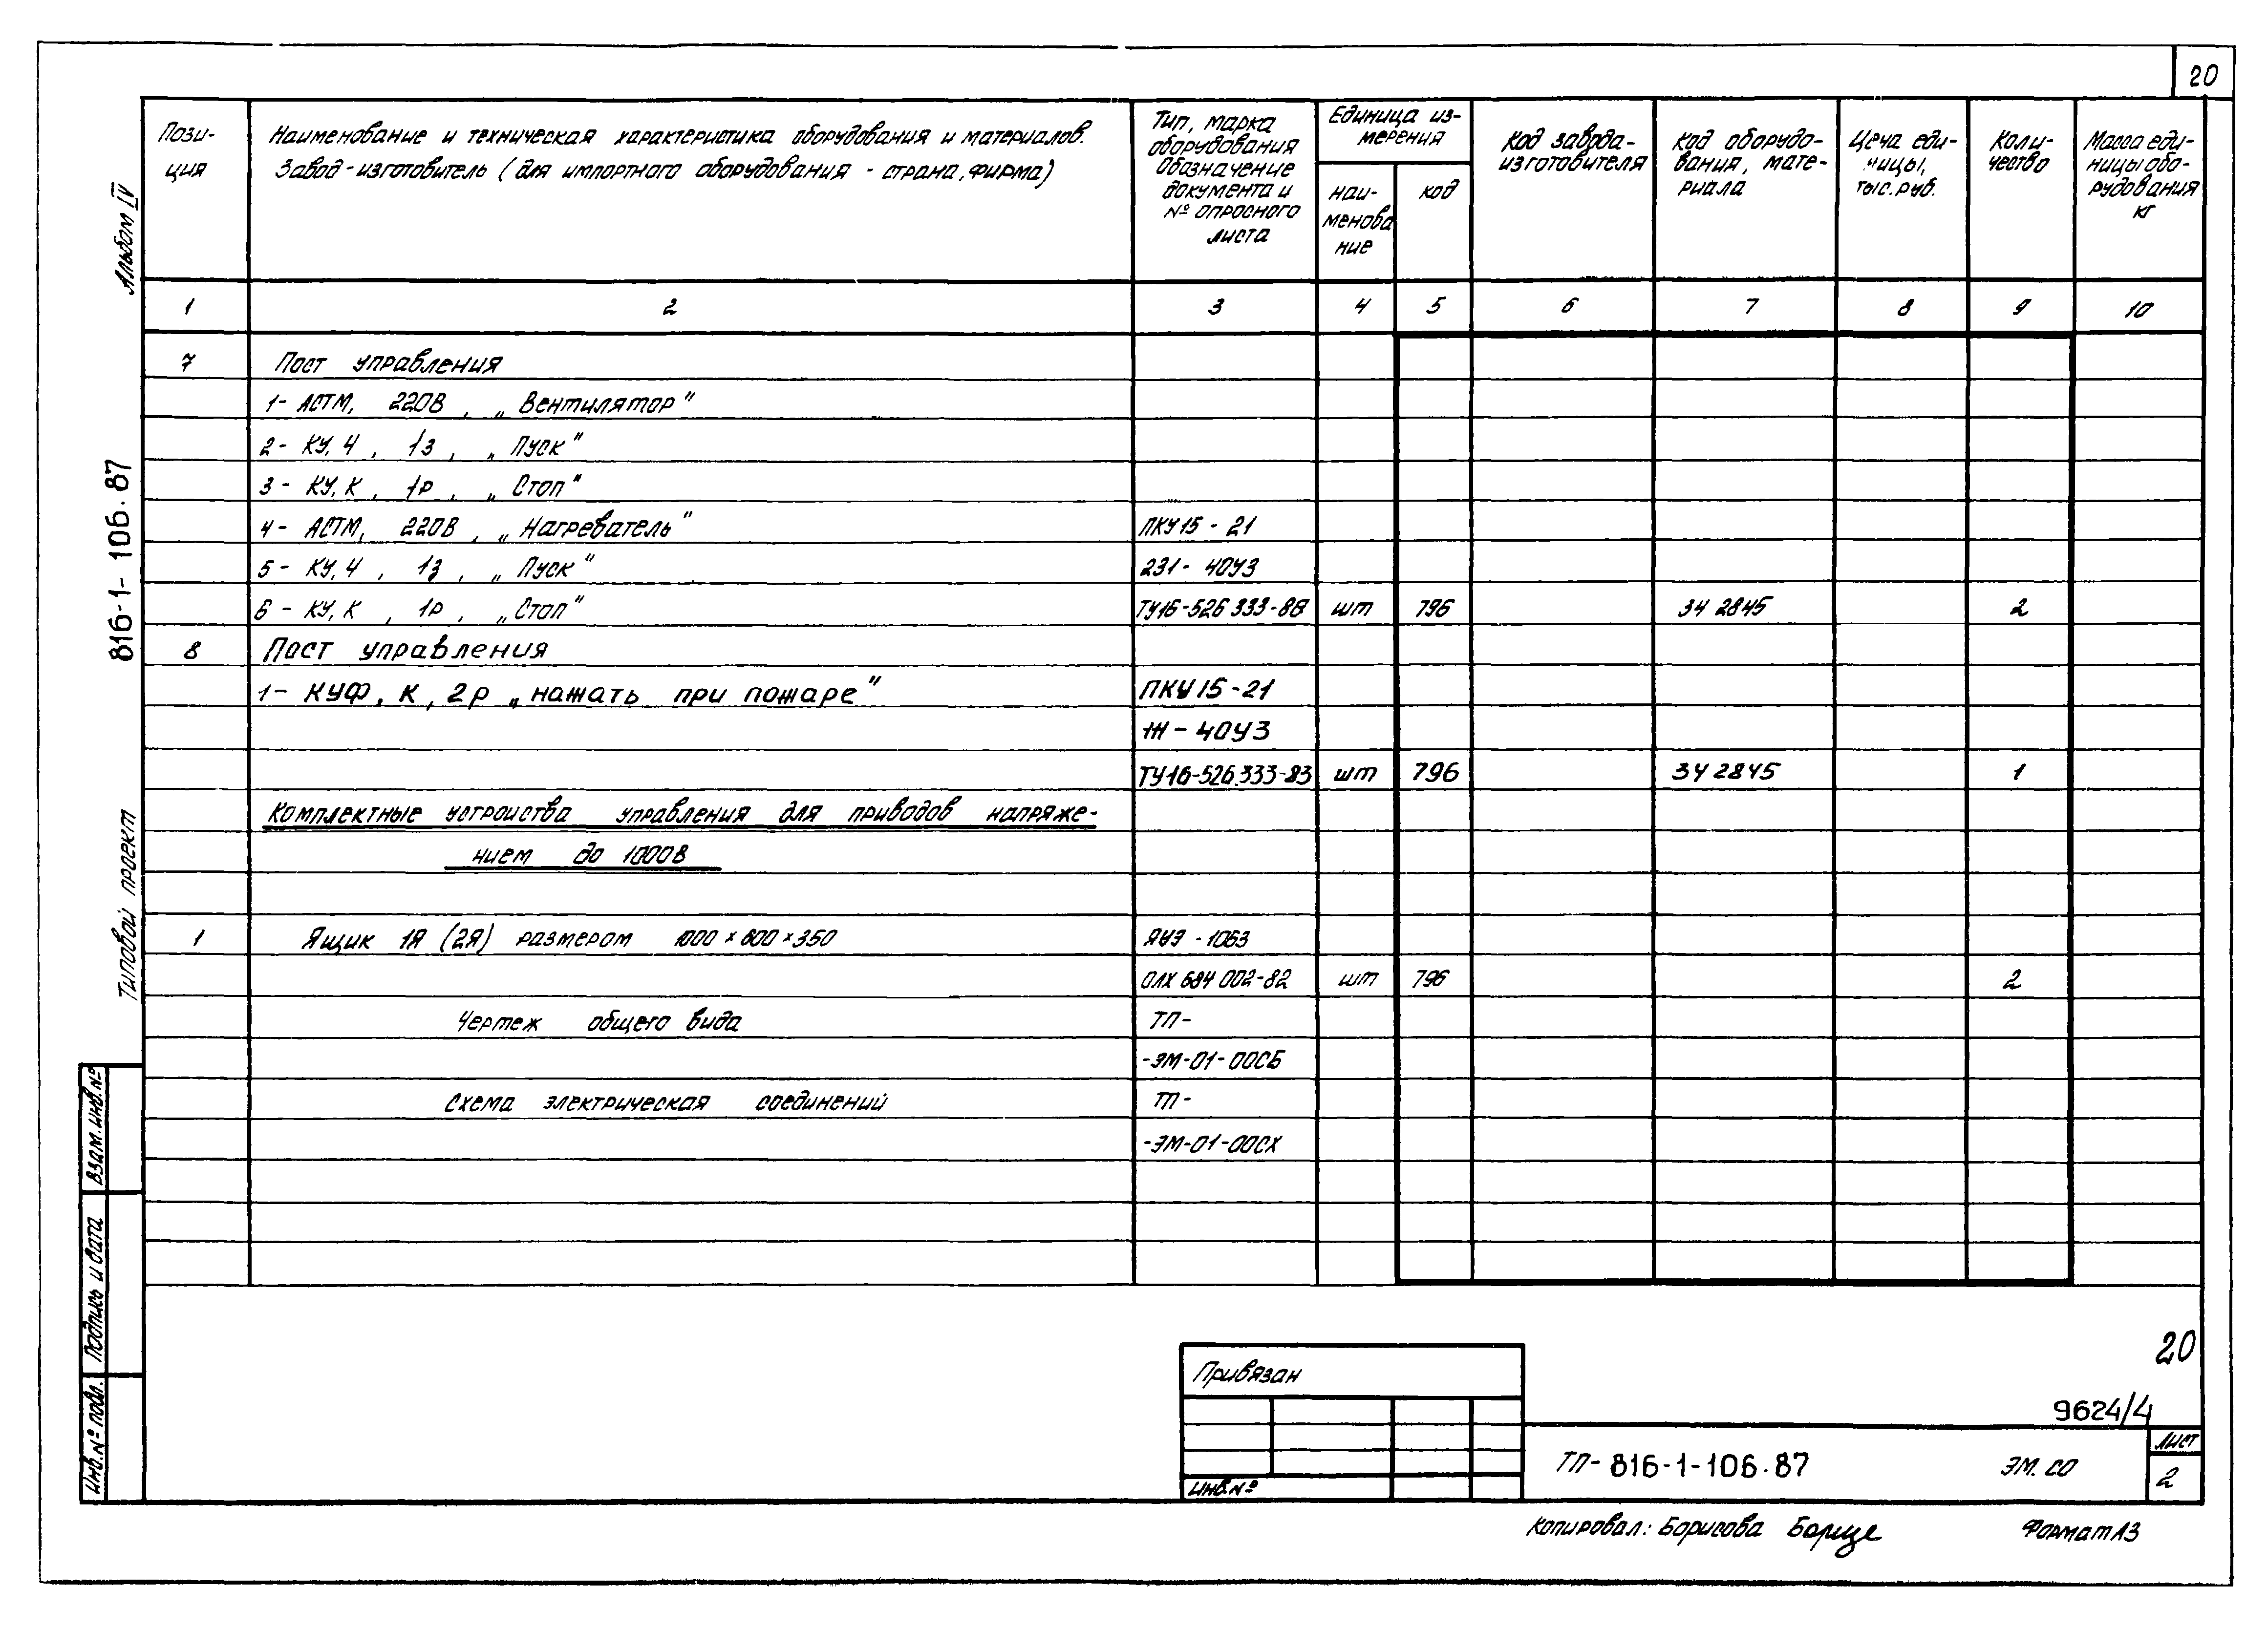 20
Пози-
ция
Наименование и техническая характеристика оборудования и материалов.
Завод-изготовитель (для импортного оборудования - страна, фирма)
Тип, марка
оборудования
Обозначение
документа и
№ опросного
листа
Единица из-
мерения
наи-
менова
ние
код
Код завода-
изготовителя
Код оборудо-
вания, мате-
риала
Цена еди-
ницы,
тыс. руб.
Коли-
чество
Масса еди-
ницы обо-
рудования
кг
1 2 3 4 5 6 7 8 9 10
7 Пост управления
1- АСТМ, 220В, „Вентилятор"
2- КУ, Ч, 1з, „Пуск"
3- КУ, К, 1р, „Стоп"
4- АСТМ, 220В, „Нагреватель" ПКУ15-21
5- КУ, Ч, 1з, „Пуск" 231-40У3
6- КУ, К, 1р, „Стоп" ТУ16-526 333- шт 796 34 2845 2
8 Пост управления
1- КУФ, К, 2р „нажать при пожаре" ПКУ15-21
-40У3
ТУ16-526.333-83 шт 796 34 2845 1
Комплектные устройства управления для приводов напряже-
нием до 1000В
1 Ящик 1Я (2Я) размером 1000×600×350 ЯУЭ-1063
ОЛХ 684 002-82 шт 796 2
Чертеж общего вида ТП-
-ЭМ-01-00СБ
Схема электрическая соединений ТП-
-ЭМ-01-00СХ
Альбом IV
816-1-106.87
Типовой проект
Взам. инв. №
Подпись и дата
Инв. № подл.
Привязан
Инв. №
20
9624/4
ТП-816-1-106.87 ЭМ.СО
Лист
2
Копировал: Борисова
Формат А3